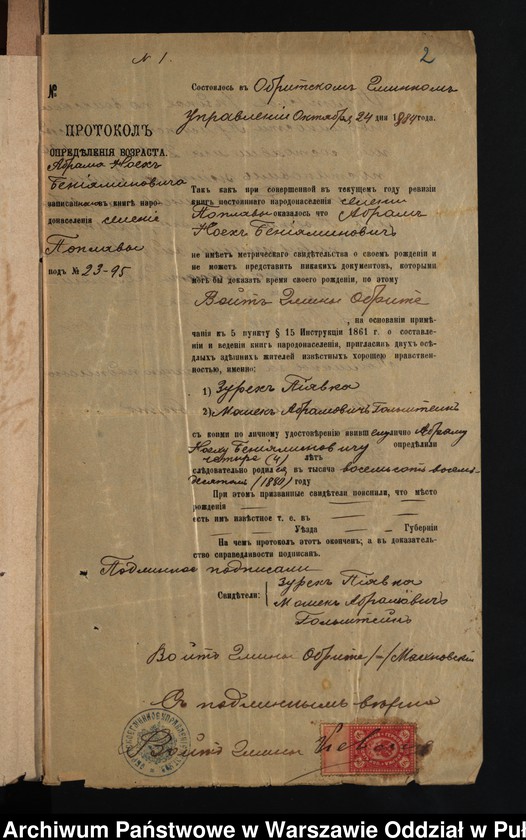 N 1.
2
№
Состоялось въ Обритскомъ Гминномъ
Управленіи Октября 24 дня 1884 года.
ПРОТОКОЛЪ
ОПРЕДѢЛЕНІЯ ВОЗРАСТА.
Абрама Носехъ
Беніяминовича
записаннаго въ книгѣ наро-
донаселенія
Поплавы
подъ № 23-95
Такъ какъ при совершенной въ текущемъ году ревизіи
книгъ постояннаго народонаселенія
Поплавы оказалось что Абрамъ
Носехъ Беніяминовичъ
не имѣетъ метрическаго свидѣтельства о своемъ рожденіи и
не можетъ представить никакихъ документовъ, которыми
могъ бы доказать время своего рожденія, по этому
Войтъ Гмины Обрите
, на основаніи примѣ-
чанія къ 5 пункту § 15 Инструкціи 1861 г. о составле-
ніи и веденіи книгъ народонаселенія, пригласивъ двухъ осѣ-
длыхъ здѣшнихъ жителей извѣстныхъ хорошею нравствен-
ностью, именно:
1) Зурехъ Піявка
2) Мошекъ Абрамовичъ Гольштейнъ
съ коими по личному удостовѣренію лично Абраму
Беніяминовичу опредѣлили
четыре (4) лѣтъ
слѣдовательно родился въ тысяча восемьсотъ восемь-
десятомъ (1880) году
При этомъ призванные свидѣтели пояснили, что мѣсто
рожденія
есть имъ извѣстное т. е. въ
Уѣзда Губерніи
На чемъ протоколъ этотъ оконченъ; а въ доказатель-
ство справедливости подписанъ.
Подлинное подписали
Свидѣтели: Зурехъ Піявка
Мошекъ Абрамовичъ
Гольштейнъ
Войтъ Гмины Обрите /-/ Маковскій
Съ подлиннымъ вѣрно
Войтъ Гмины
Archiwum Państwowe w Warszawie Oddział w Puł